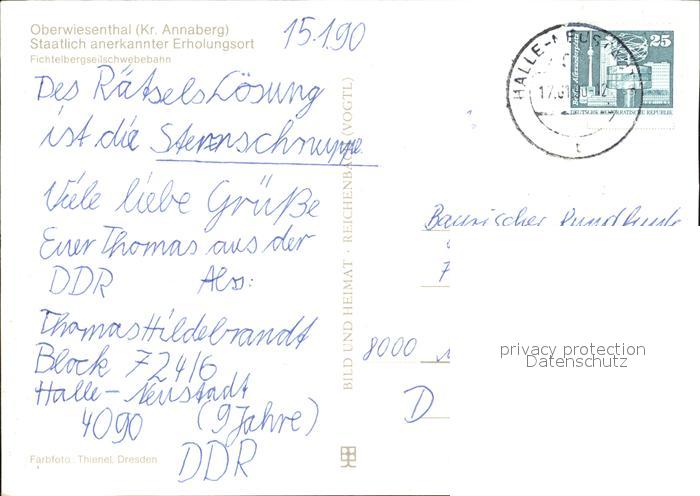 Oberwiesenthal (Kr. Annaberg)
Staatlich anerkannter Erholungsort
Fichtelbergseilschwebebahn
15.1.90
Des Rätsels Lösung
ist die Sternschnuppe
Viele liebe Grüße
Euer Thomas aus der
DDR Also:
Thomas Hildebrandt
Block 724/6
Halle-Neustadt
4090 (9 Jahre)
DDR
Farbfoto: Thienel, Dresden
BILD UND HEIMAT · REICHENBACH (VOGTL)
HALLE-NEUSTADT
25
DEUTSCHE DEMOKRATISCHE REPUBLIK
Bayrischer Rundfunk
8000
D
privacy protection
Datenschutz